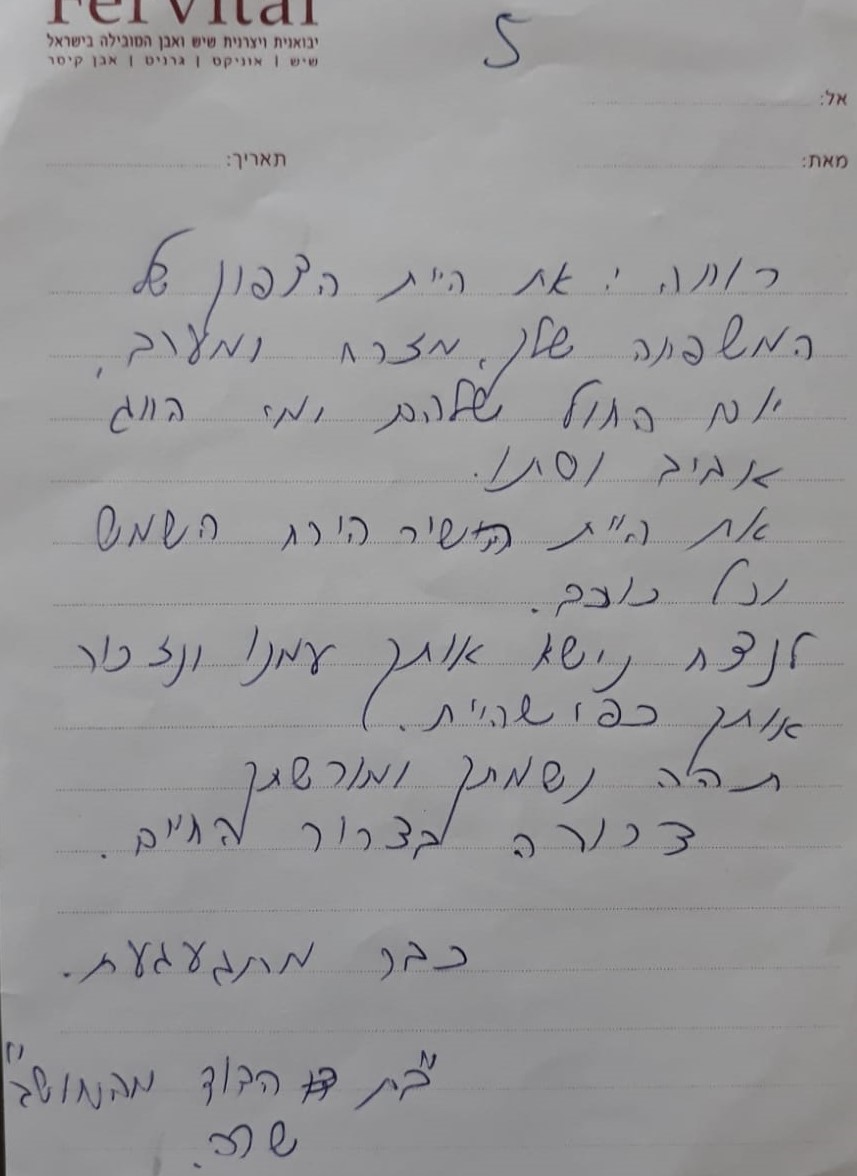 Fervital
יבואנית ויצרנית שיש ואבן המובילה בישראל
שיש | אוניקס | גרניט | אבן קיסר
5
אל:
מאת:
תאריך:
את היית הצפון של
המשפחה שלך, מזרח ומערב,
יום החול שלהם וימי החג
אביב וסתו.
את היית השיר הירח השמש
וכל כוכב.
לנצח נישא אותך עמנו ונזכור
אותך כפי שהיית.
תהא נשמתך ומורשתך
צרורה בצרור החיים.
כבר מתגעגעת.
"בת הדוד מהמושב"
שרה.